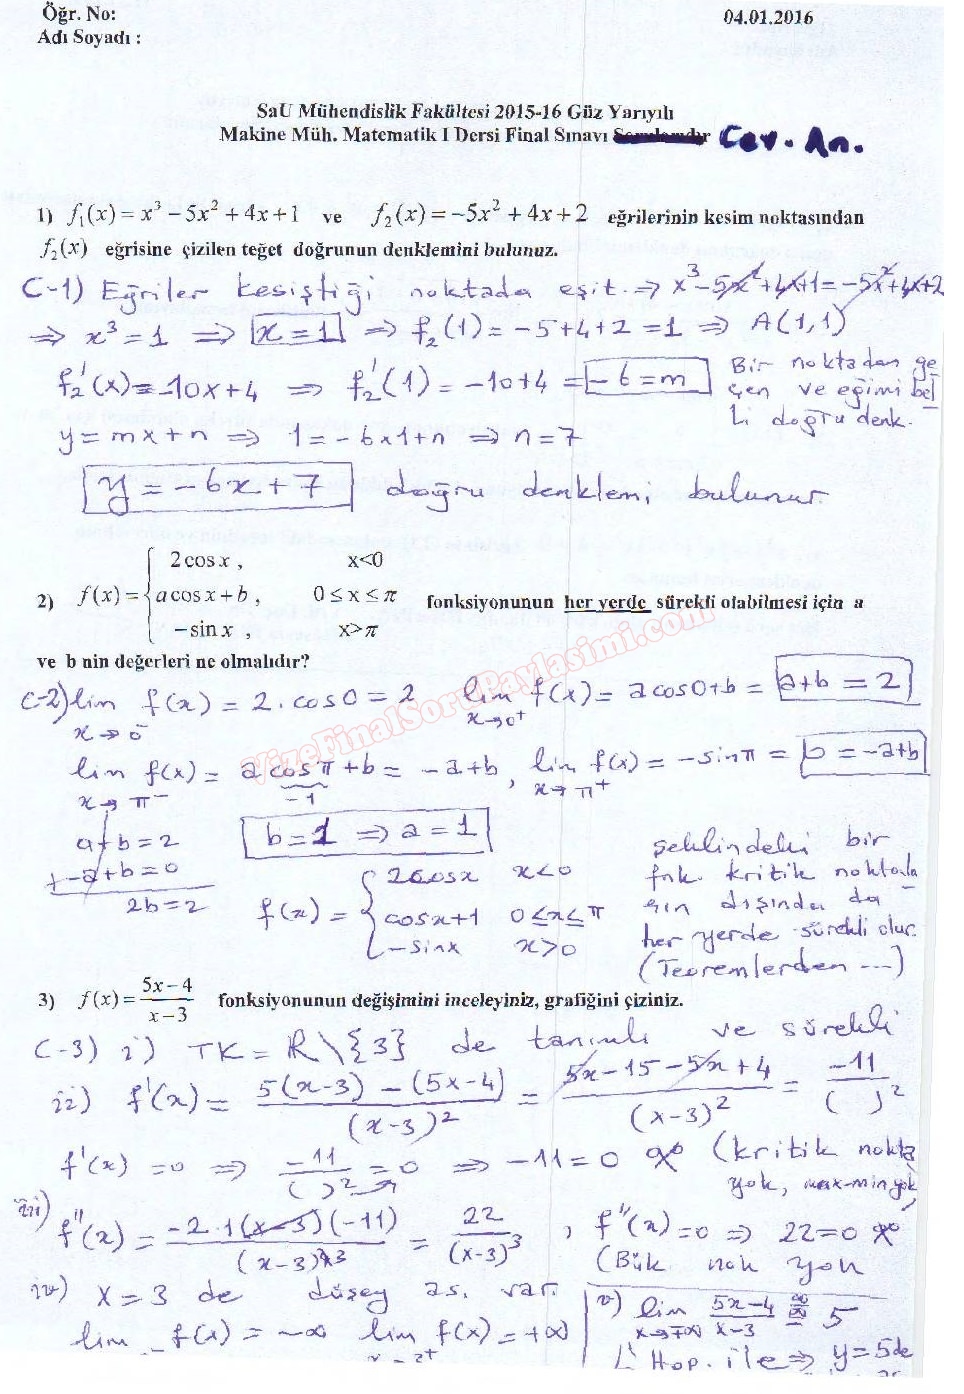 Öğr. No:
04.01.2016
Adı Soyadı :
SaU Mühendislik Fakültesi 2015-16 Güz Yarıyılı
Makine Müh. Matematik I Dersi Final Sınavı Cev. An.
1) f₁(x) = x³ − 5x² + 4x + 1 ve f₂(x) = −5x² + 4x + 2 eğrilerinin kesim noktasından
f₂(x) eğrisine çizilen teğet doğrunun denklemini bulunuz.
C-1) Eğriler kesiştiği noktada eşit. ⇒ x³ − 5x² + 4x + 1 = −5x² + 4x + 2
⇒ x³ = 1 ⇒ x = 1 ⇒ f₂(1) = −5+4+2 = 1 ⇒ A(1,1)
f₂'(x) = −10x + 4 ⇒ f₂'(1) = −10+4 = −6 = m
Bir noktadan ge
çen ve eğimi bel
li doğru denk.
y = mx + n ⇒ 1 = −6x1+n ⇒ n = 7
y = −6x + 7 doğru denklemi bulunur.
2) f(x) = { 2 cos x , x<0
a cos x + b , 0 ≤ x ≤ π
− sin x , x>π
fonksiyonunun her yerde sürekli olabilmesi için a
ve b nin değerleri ne olmalıdır?
C-2) lim f(x) = 2. cos0 = 2 lim f(x) = a cos0+b = a+b = 2
x→0⁻ x→0⁺
lim f(x) = a cosπ + b = −a+b, lim f(x) = −sinπ = b = −a+b
x→π⁻ −1 x→π⁺
a+b = 2
+ −a+b = 0
2b = 2
b = 1 ⇒ a = 1
f(x) = { 2cosx x<0
cosx+1 0≤x≤π
−sinx x>0
şeklindeki bir
fnk. kritik noktala
rın dışında da
her yerde sürekli olur.
(Teoremlerden ---)
VizeFinalSoruPaylasimi.com
3) f(x) = (5x − 4)/(x − 3) fonksiyonunun değişimini inceleyiniz, grafiğini çiziniz.
C-3) i) TK = R\{3} de tanımlı ve sürekli
ii) f'(x) = (5(x−3) − (5x−4))/(x−3)² = (5x−15−5x+4)/(x−3)² = −11/( )²
f'(x) = 0 ⇒ −11/( )² = 0 ⇒ −11 = 0 (kritik nokta
yok, max-min yok)
iii) f''(x) = (−2.1(x−3)(−11))/(x−3)⁴ = 22/(x−3)³ , f''(x) = 0 ⇒ 22=0
(Bük nok yok
iv) x = 3 de düşey as. var.
lim f(x) = −∞ lim f(x) = +∞
v) lim (5x−4)/(x−3) = 5
x→∓∞
L'Hop. ile ⇒ y = 5 de